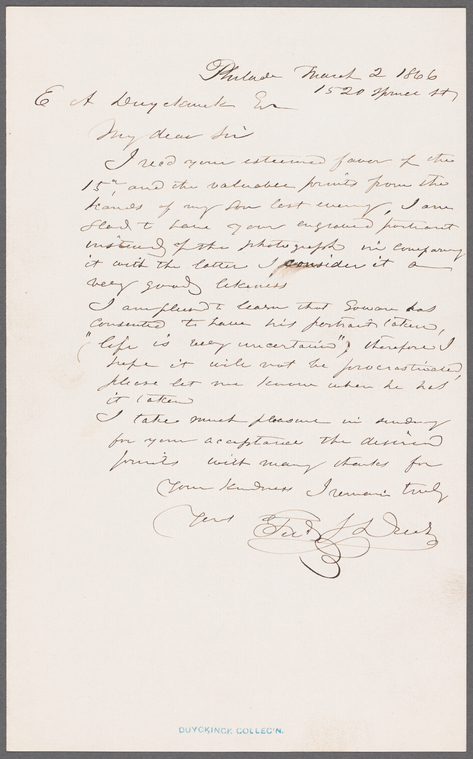 Philada March 2 1866
1520 Spruce St
E A Duyckinck Esr
My dear Sir
I recd your esteemed favor of the
15th, and the valuable prints from the
hands of my son last eveng, I am
glad to have your engraved portrait
instead of the photograph in comparing
it with the latter I consider it a
very good likeness
I am pleasd to learn that Gowan has
consented to have his portrait taken,
"life is very uncertain", therefore I
hope it will not be procrastinated,
please let me know when he has
it taken
I take much pleasure in sending
for your acceptance the desired
prints with many thanks for
your kindness I remain truly
Yours Ferd. J Dreer
DUYCKINCK COLLEC'N.